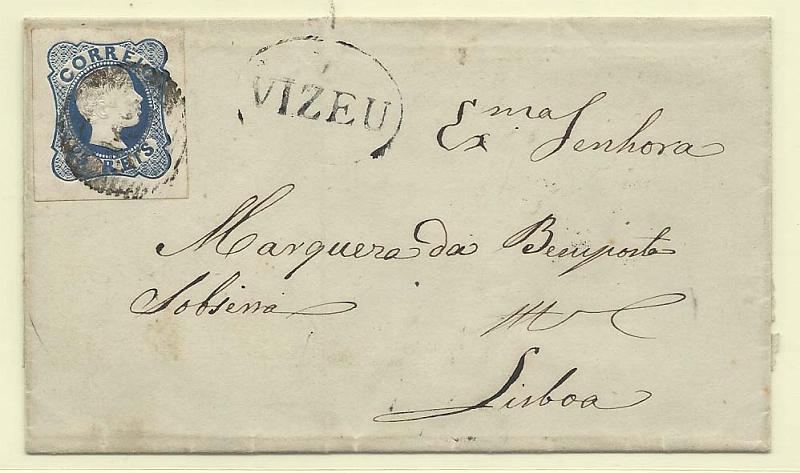 CORREIO
REIS
VIZEU
Exma Senhora
Marqueza da Bemposta
Sobserra
Lisboa